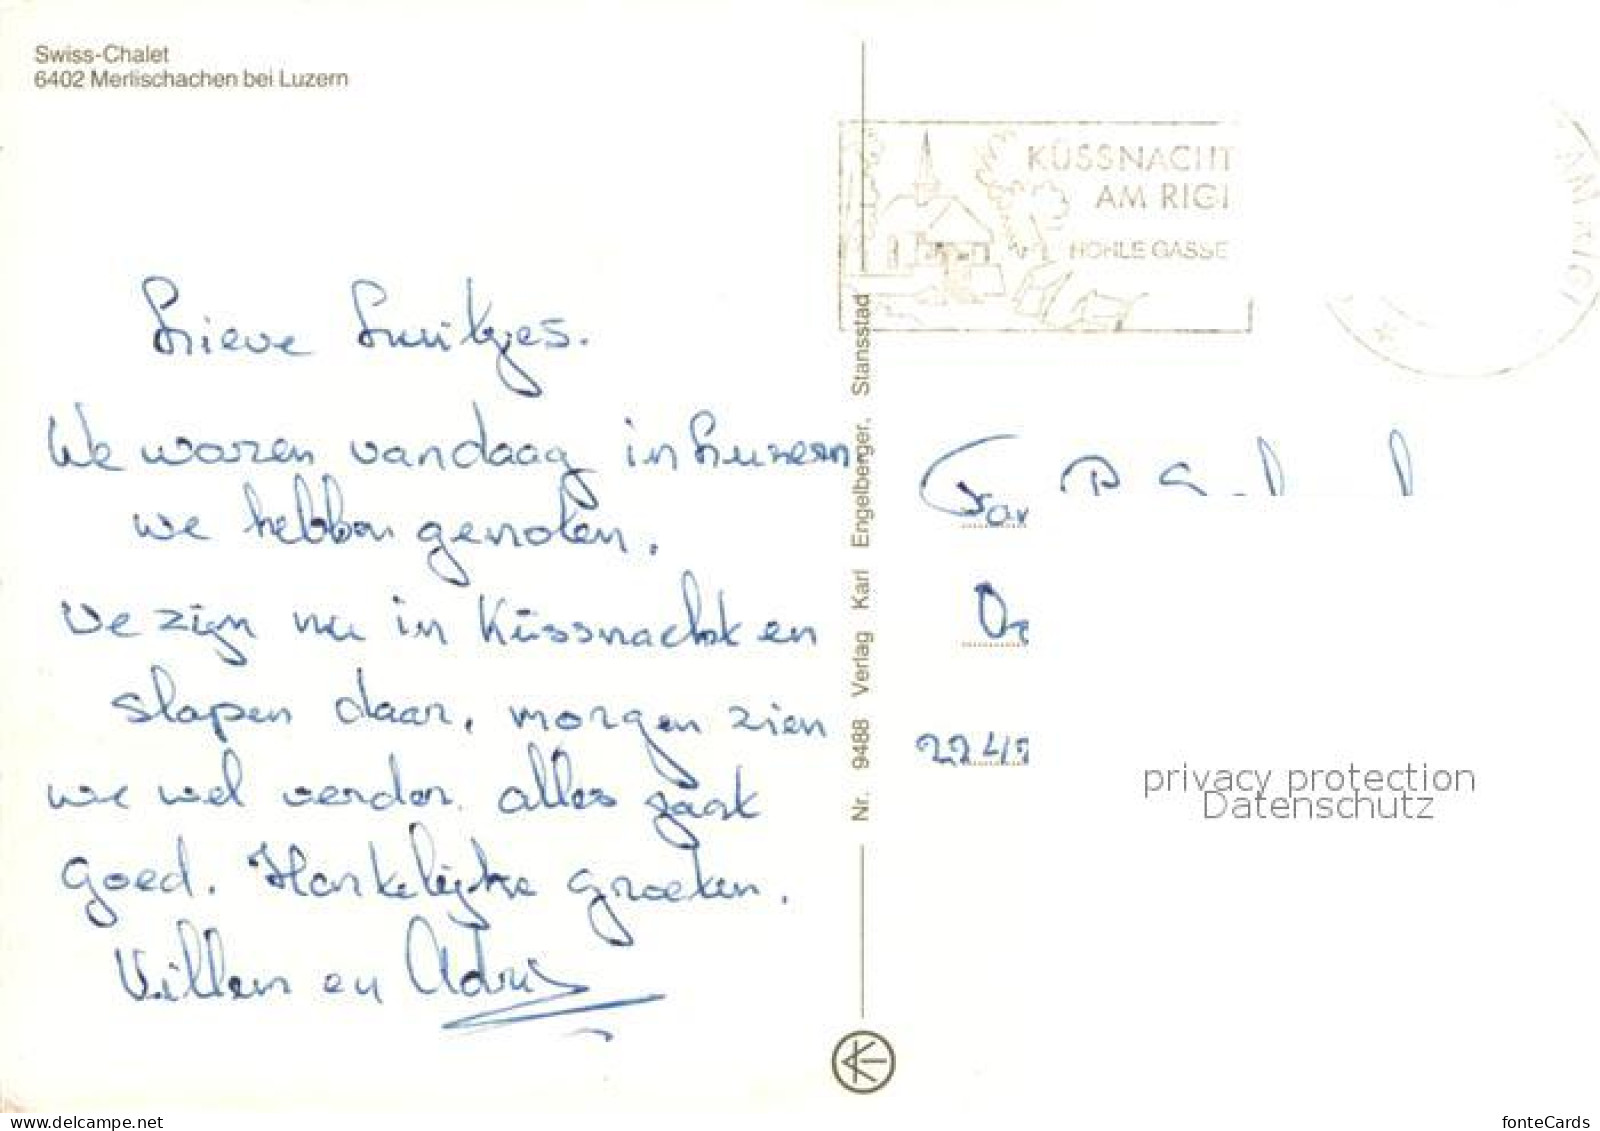 Swiss-Chalet
6402 Merlischachen bei Luzern
KÜSSNACHT
AM RIGI
HOHLE GASSE
AM RIGI
*
Lieve Luitjes.
We waren vandaag in Luzern
we hebben genoten.
We zijn nu in Küssnacht en
slapen daar, morgen zien
we wel verder. alles gaat
goed. Hartelijke groeten.
Willem en Adri
Nr. 9488 Verlag Karl Engelberger, Stansstad
Fam
224
privacy protection
Datenschutz
delcampe.net
fonteCards